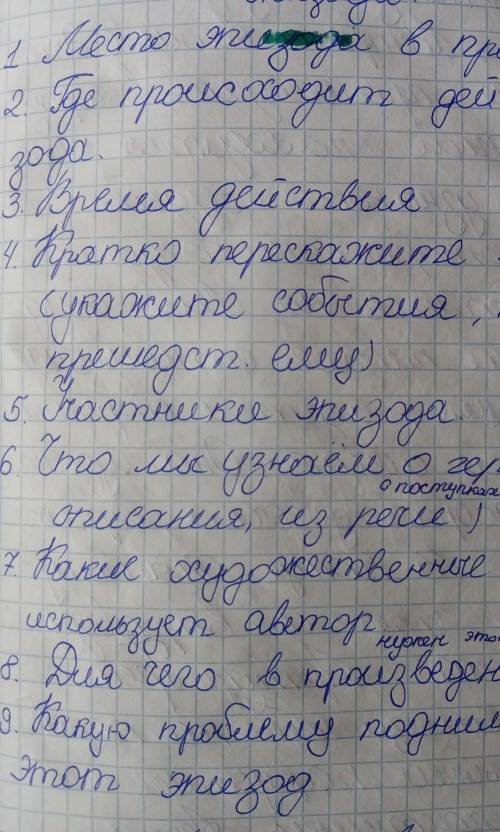 1 Место эпизода в пр
2. Где происходит дей
зода.
3. Время действия
4. Кратко перескажите
(укажите события,
прешедст. ему)
5. Участники эпизода.
6. Что мы узнаём о гер
о поступках
описания, из речи)
7. Какие художественные
использует автор
нужен это
8. Для чего в произведен
9. Какую проблему поднима
этот эпизод